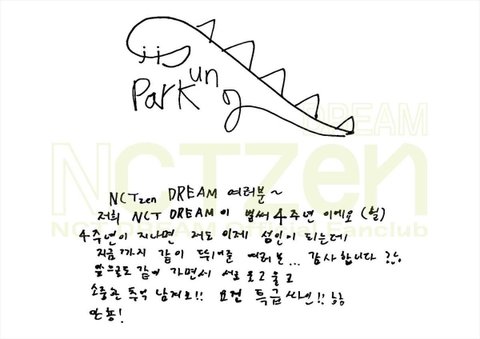 Park
un
g
DREAM
NCTzen
NCT DREAM Official Fanclub
NCTzen DREAM 여러분~
저희 NCT DREAM이 벌써 4주년 이에요 (힐)
4주년이 지나면 저도 이제 성인이 되는데!
지금까지 같이 뛰어준 여러분... 감사합니다
앞으로도 같이 가면서 서로 웃고 울고
소중한 추억 남겨요!! 요건 특급 싸인!! ㅎㅎ
안뇽!